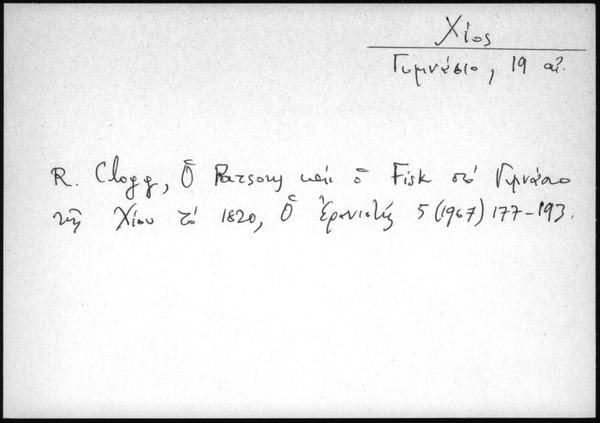 Χίος
Γυμνάσιο, 19 αἰ.
R. Clogg, Ὁ Parsons καὶ ὁ Fisk στό Γυμνάσιο
τῆς Χίου τό 1820, Ὁ Ἐρανιστής 5 (1967) 177-193.